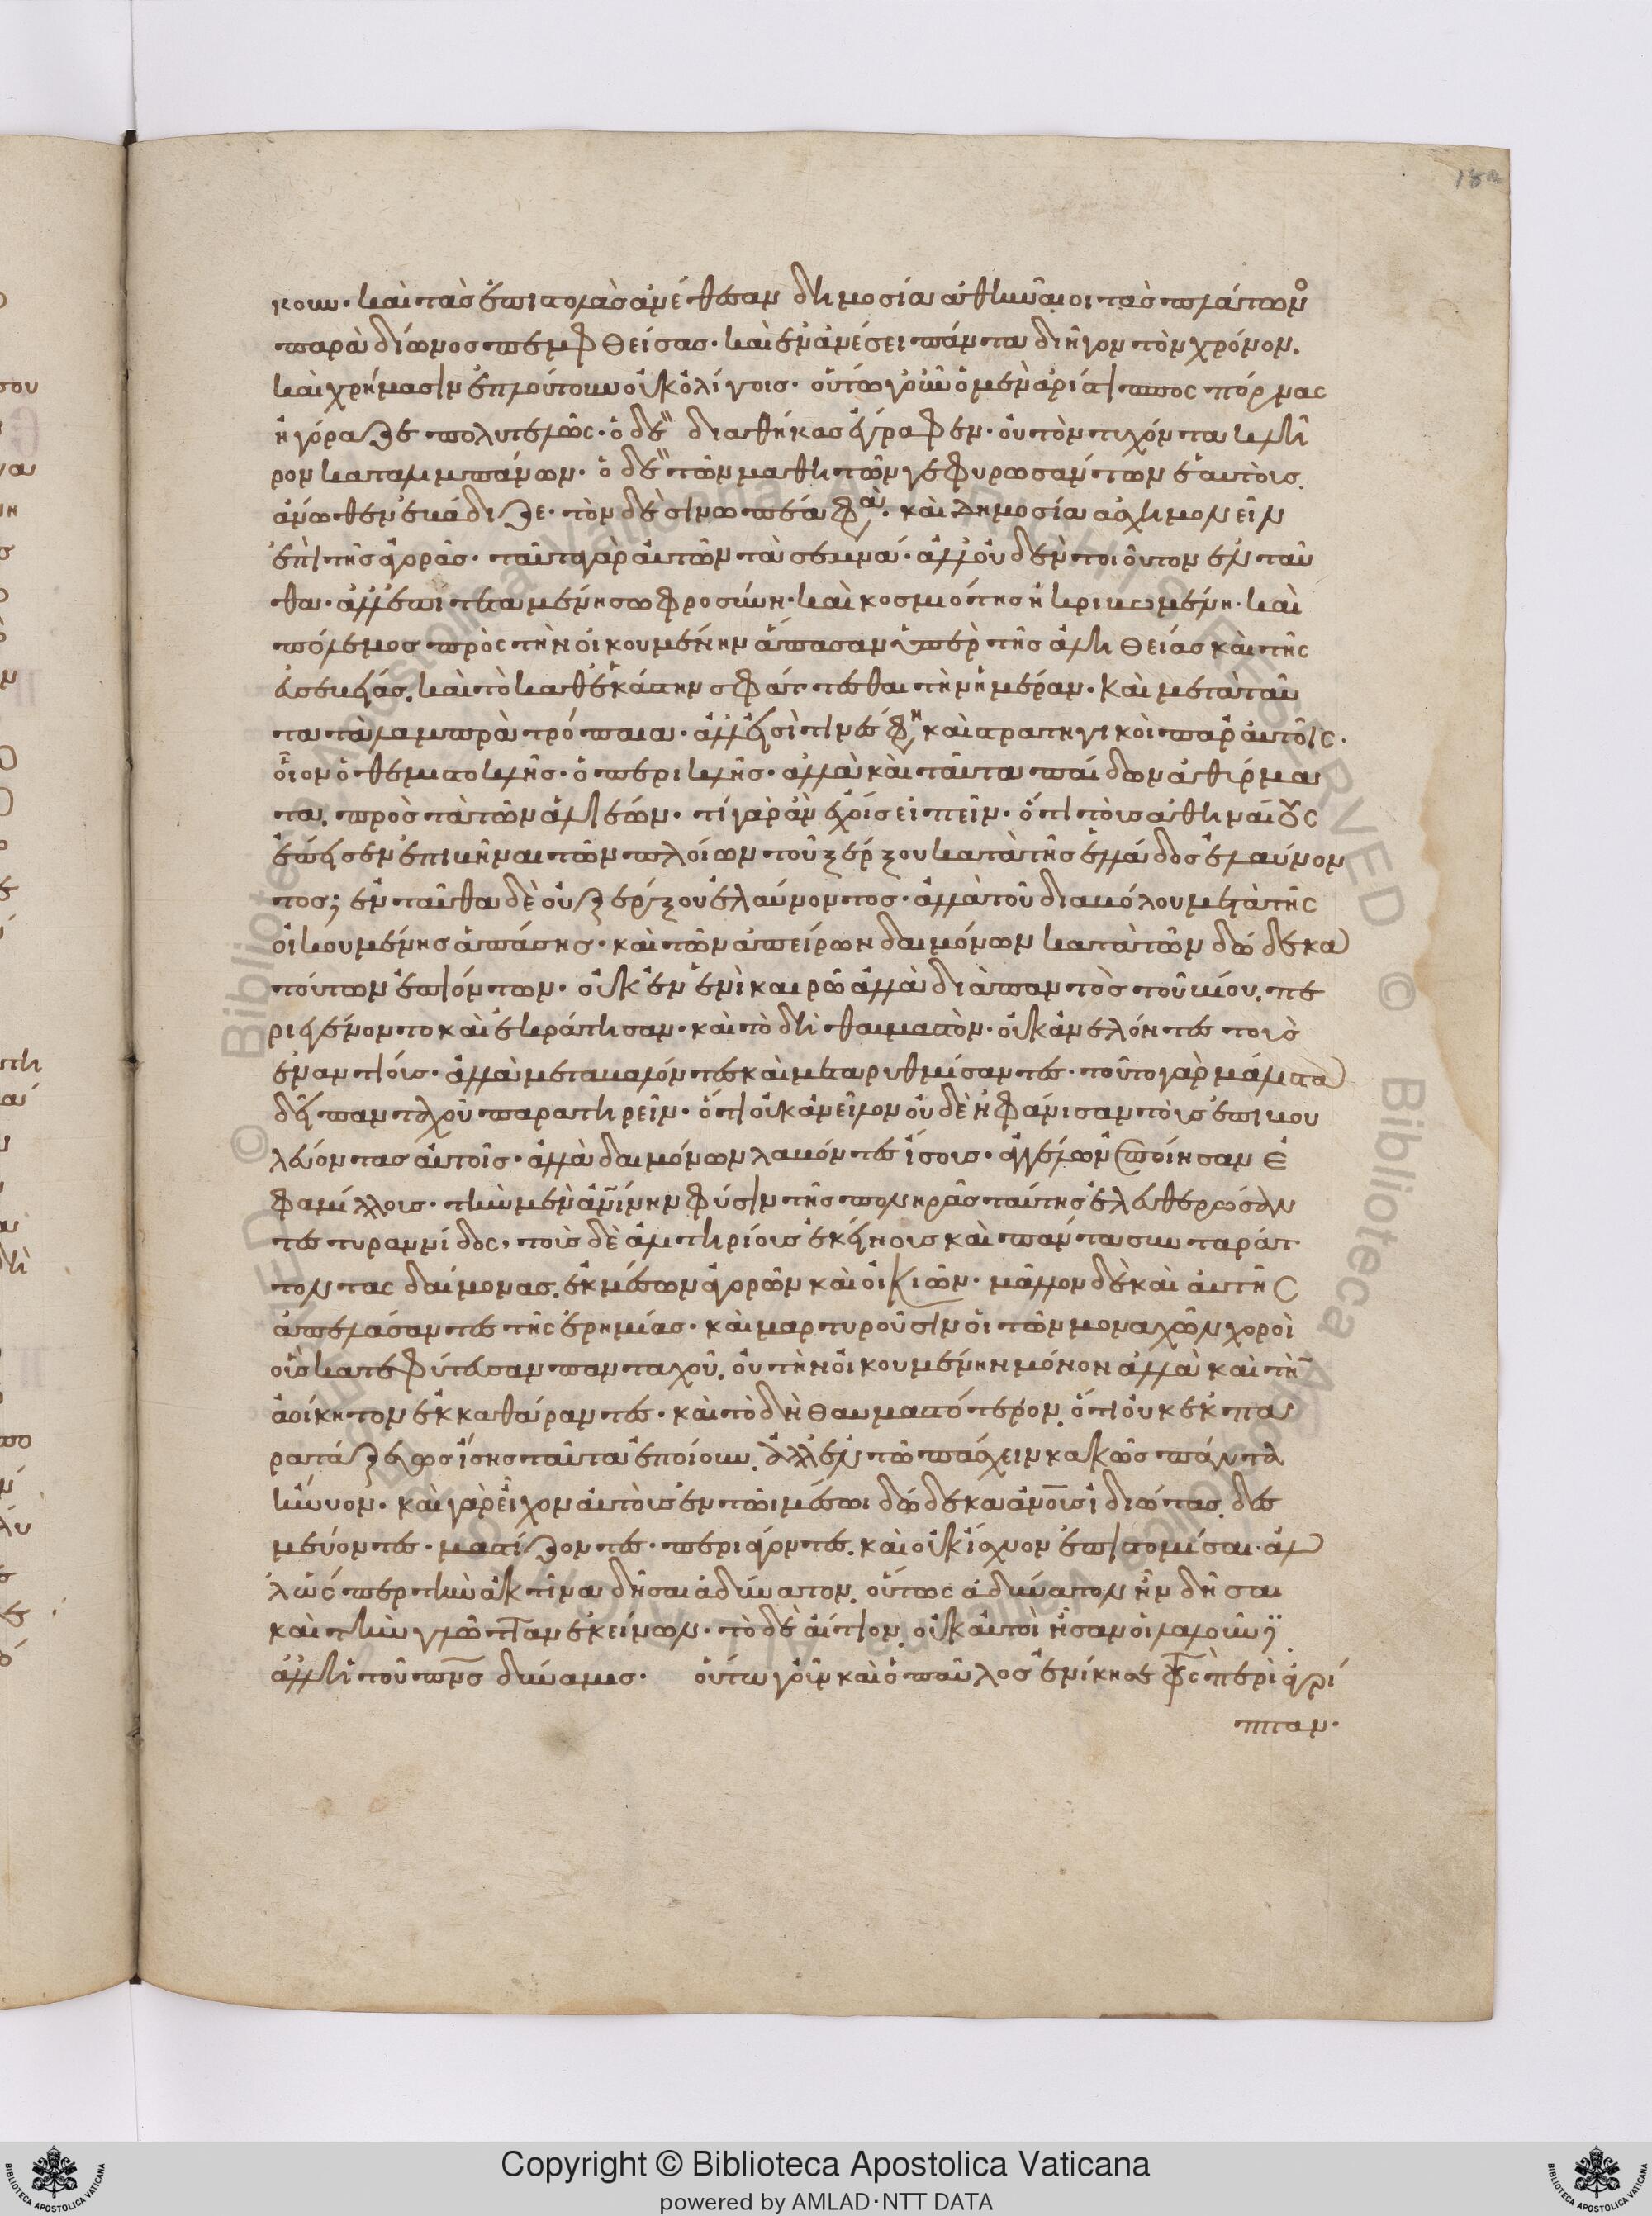 κουν· καὶ τὰς ἐπιστολὰς ἀνέθεσαν δημοσία ἀθηναῖοι τὰς πλάτωνος
παρὰ δίωνος πεμφθείσας· καὶ ἐν ἀνέσει πάντα διῆγον τὸν χρόνον.
καὶ χρήμασιν ἐπλούτουν οὐκ ὀλίγοις· οὕτω γοῦν ὁ μὲν ἀρίστιππος πόρνας
ἠγόραζε πολυτελῶς· ὁ δὲ διαθήκας ἔγραφεν· οὐ τὸν τυχόντα κλῆ
ρον καταλιμπάνων· ὁ δὲ τῶν μαθητῶν γεφυρωσάντων ἑαυτοὺς
ἄνωθεν ἐβάδιζε· τὸν δὲ σινωπέα φα. καὶ δημοσία ἀσχημονεῖν
ἐπὶ τῆς ἀγορᾶς· ταῦτα γὰρ αὐτῶν τὰ σεμνά· ἀλλ' οὐδὲν τοιοῦτον ἐνταῦ
θα· ἀλλ' ἐπιτεταμένη σωφροσύνη· καὶ κοσμιότης ἠκριβωμένη· καὶ
πόλεμος πρὸς τὴν οἰκουμένην ἅπασαν ὑπὲρ τῆς ἀληθείας καὶ τῆς
εὐσεβείας. καὶ τὸ καθ' ἑκάστην σφάττεσθαι τὴν ἡμέραν· καὶ μετὰ ταῦ
τα τὰ λαμπρὰ τρόπαια· ἀλλ' εἰσί τινές φη καὶ στρατηγικοὶ παρ' αὐτοῖς·
οἷον ὁ θεμιστοκλῆς· ὁ περικλῆς· ἀλλὰ καὶ ταῦτα παίδων ἀθύρμα
τα. πρὸς τὰ τῶν ἁλιέων· τί γὰρ ἂν ἔχοις εἰπεῖν· ὅτι τοὺς ἀθηναίους
ἔπεισεν ἐπιβῆναι τῶν πλοίων τοῦ ξέρξου κατὰ τῆς ἑλλάδος ἐλαύνον
τος; ἐνταῦθα δὲ οὐ ξέρξου ἐλαύνοντος· ἀλλὰ τοῦ διαβόλου μετὰ τῆς
οἰκουμένης ἁπάσης· καὶ τῶν ἀπείρων δαιμόνων κατὰ τῶν δώδεκα
τούτων ἐπιόντων· οὐκ ἐν ἑνὶ καιρῶ ἀλλὰ διὰ παντὸς τοῦ βίου. πε
ριεγένοντο καὶ ἐκράτησαν· καὶ τὸ δὴ θαυμαστόν· οὐκ ἀνελόντες τοὺς
ἐναντίους· ἀλλὰ μεταβαλόντες καὶ μεταρυθμίσαντες· τοῦτο γὰρ μάλιστα
δεῖ πανταχοῦ παρατηρεῖν· ὅτι οὐκ ἀνεῖλον οὐδὲ ἠφάνισαν τοὺς ἐπιβου
λεύοντας αὐτοῖς· ἀλλὰ δαιμόνων λαβόντες ἴσους· ἀγγέλων ἐποίησαν ἐ
φαμίλλους· τὴν μὲν ἀνίνην φύσιν τῆς πονηρᾶς ταύτης ἐλευθερώσαν
τες τυραννίδος, τοὺς δὲ ἀλιτηρίους ἐκείνους καὶ πάντα συνταράτ
τοντας δαίμονας. ἐκ μέσων ἀγορῶν καὶ οἰκιῶν· μᾶλλον δὲ καὶ αὐτῆς
ἀπελάσαντες τῆς ἐρημίας· καὶ μαρτυροῦσιν οἱ τῶν μοναχῶν χοροὶ
οὓς κατεφύτευσαν πανταχοῦ. οὐ τὴν οἰκουμένην μόνον ἀλλὰ καὶ τὴν
ἀοίκητον ἐκκαθάραντες· καὶ τὸ δὴ θαυμαστότερον. ὅτι οὐκ ἐκ πα
ρατάξεως ἴσης ταῦτα ἐποίουν. ἀλλ' ἐν τῶ πάσχειν κακῶς πάντα
ἤνυον· καὶ γὰρ εἶχον αὐτοὺς ἐν τῶι μέσωι δώδεκα ἀνους ἰδιώτας. δεσ
μεύοντες· μαστίζοντες· περιάγοντες. καὶ οὐκ ἴσχυον ἐπιστομίσαι· ἀλ
λ' ὥσπερ τὴν ἀκτῖνα δῆσαι ἀδύνατον. οὕτως ἀδύνατον ἦν δῆσαι
καὶ τὴν γλῶτταν ἐκείνων· τὸ δὲ αἴτιον. οὐκ αὐτοὶ ἦσαν οἱ λαλοῦντες
ἀλλ' ἡ τοῦ πνς δύναμις· οὕτω γοῦν καὶ ὁ παῦλος ἐνίκησε τοὺς περὶ ἀγρί
ππαν·